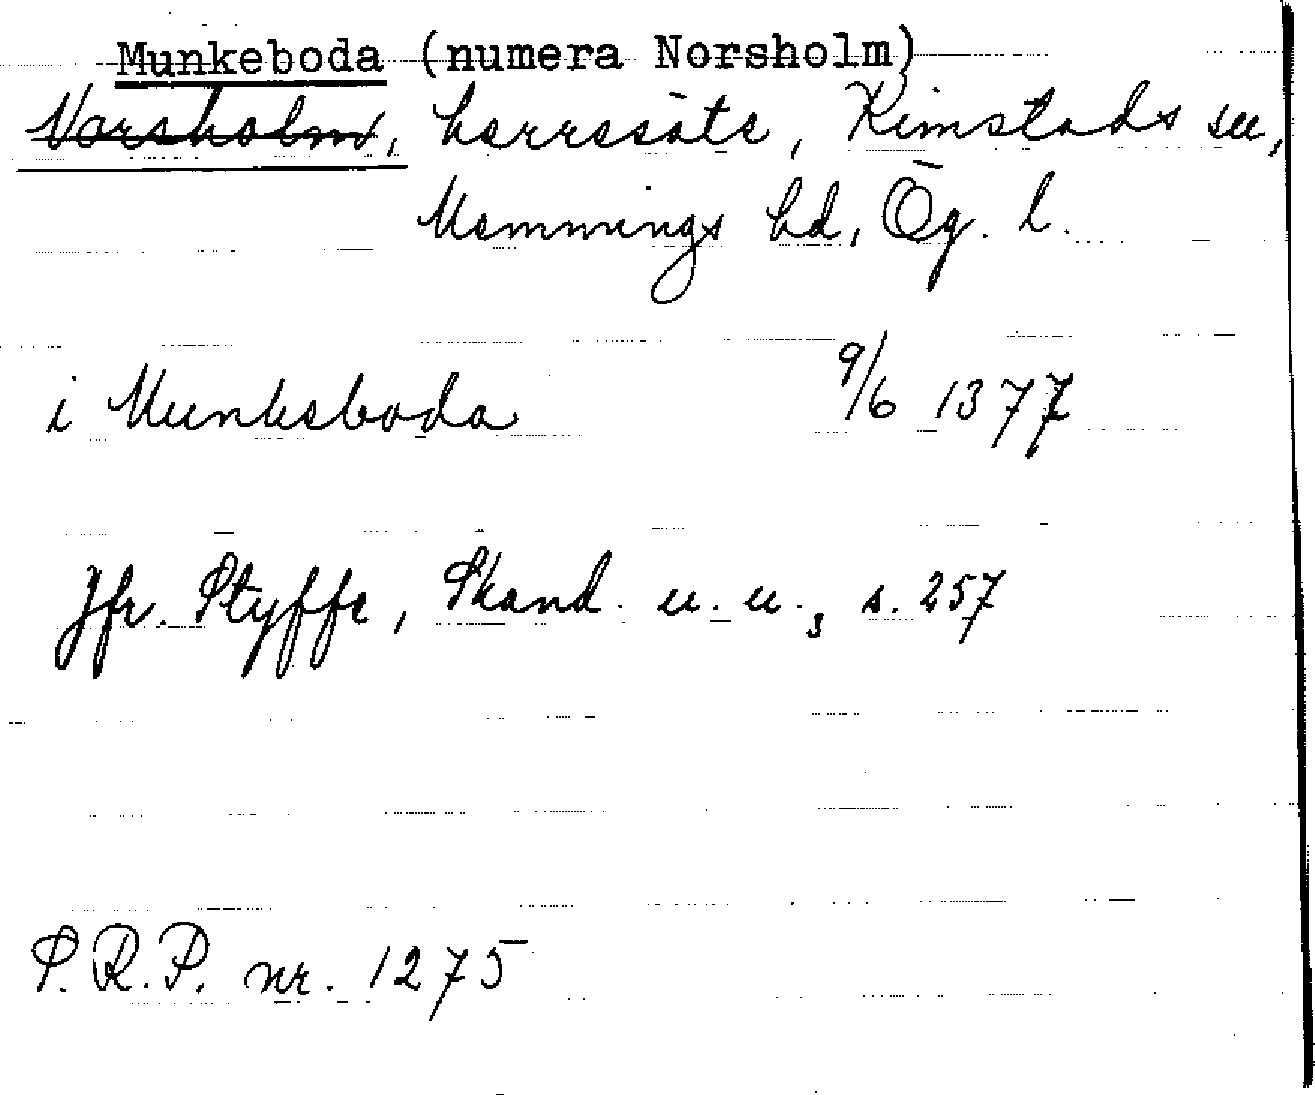 Munkeboda (numera Norsholm)
Norsholm, herresäte, Kimstads sn,
Memmings hd, Ög. l.
i Munkeboda 9/6 1377
Jfr. Styffe, Skand. u. u., s. 257
S.R.P. nr. 1275